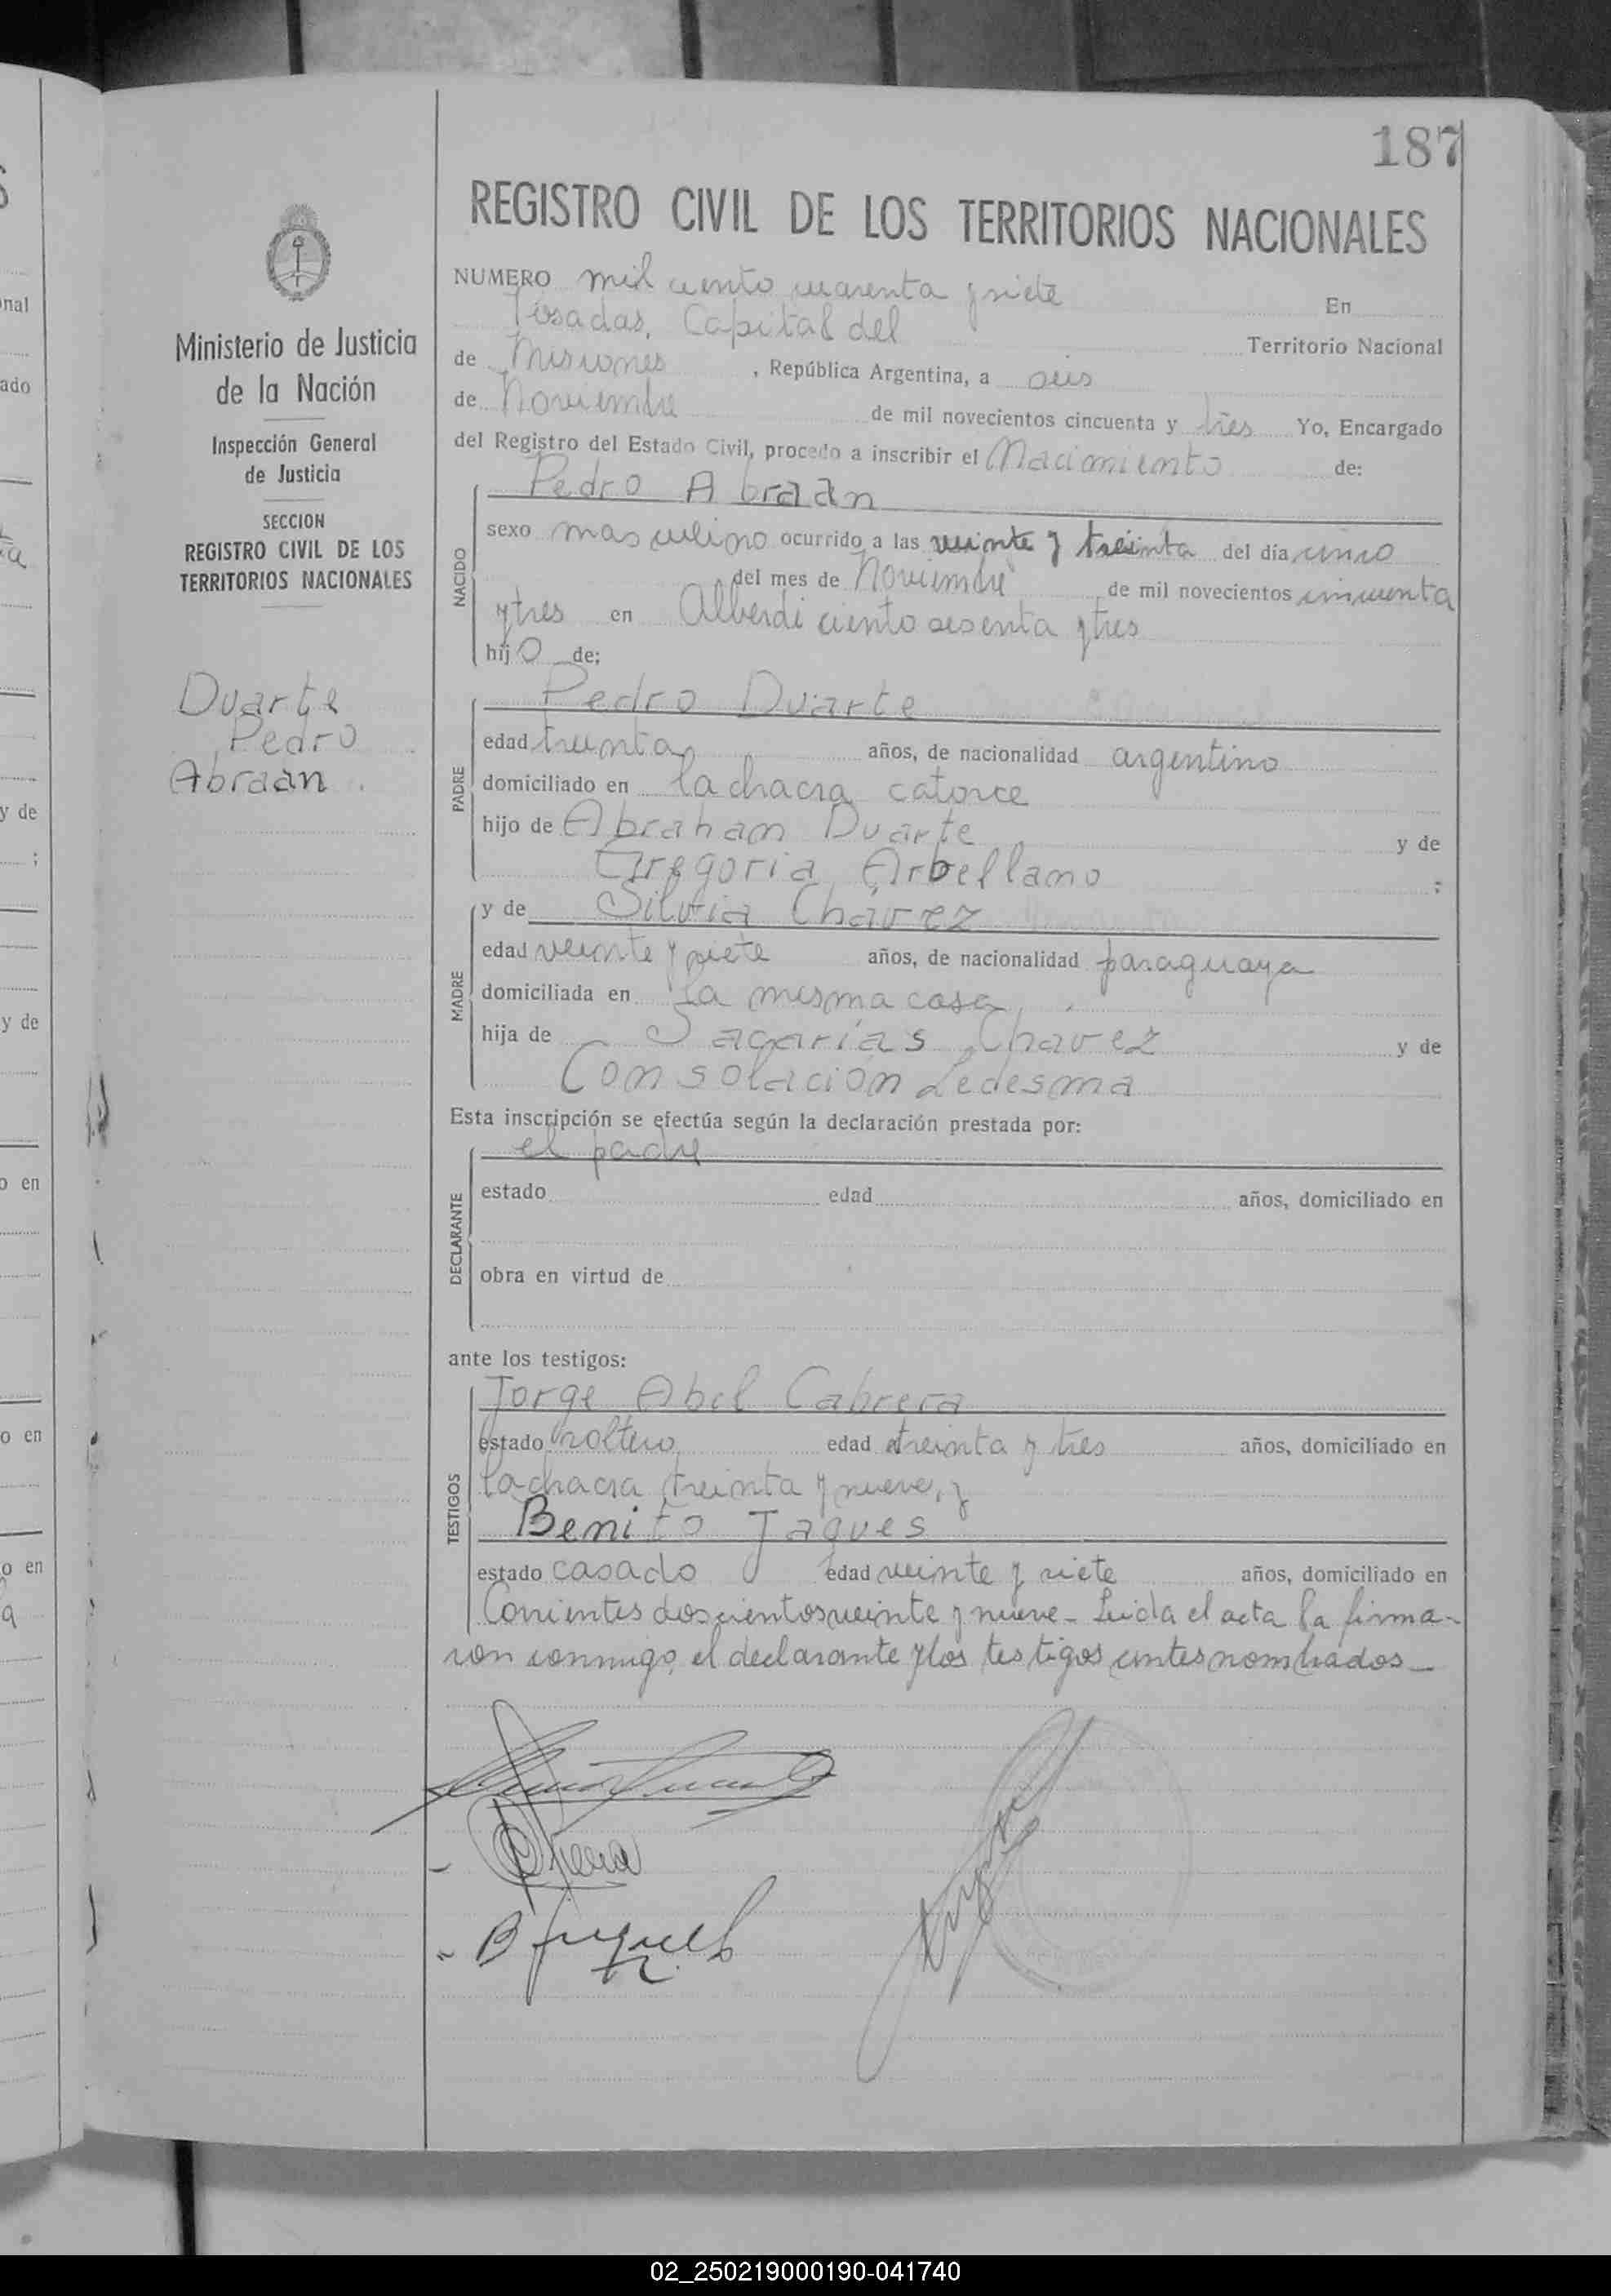 187
REGISTRO CIVIL DE LOS TERRITORIOS NACIONALES
Ministerio de Justicia
de la Nación
Inspección General
de Justicia
SECCION
REGISTRO CIVIL DE LOS
TERRITORIOS NACIONALES
Duarte
Pedro
Abraan.
NUMERO mil ciento cuarenta y siete En
Posadas, Capital del Territorio Nacional
de Misiones, República Argentina, a seis
de Noviembre de mil novecientos cincuenta y tres Yo, Encargado
del Registro del Estado Civil, procedo a inscribir el Nacimiento de:
Pedro Abraan
NACIDO
sexo masculino ocurrido a las veinte y treinta del día cinco
del mes de Noviembre de mil novecientos cincuenta
y tres en Alberdi ciento sesenta y tres
hijo de;
Pedro Duarte
PADRE
edad treinta años, de nacionalidad argentino
domiciliado en la chacra catorce
hijo de Abraham Duarte y de
Gregoria Arbellano ;
y de Silvia Chávez
MADRE
edad veinte y siete años, de nacionalidad paraguaya
domiciliada en la misma casa,
hija de Sacarías Chavez y de
Consolación Ledesma
Esta inscripción se efectúa según la declaración prestada por:
el padre
DECLARANTE
estado edad años, domiciliado en
obra en virtud de
ante los testigos:
Jorge Abel Cabrera
TESTIGOS
estado soltero edad treinta y tres años, domiciliado en
la chacra treinta y nueve, y
Benito Jaques
estado casado edad veinte y siete años, domiciliado en
Corrientes doscientos veinte y nueve - Leida el acta la firma-
ron conmigo, el declarante y los testigos antes nombrados -
02_250219000190-041740